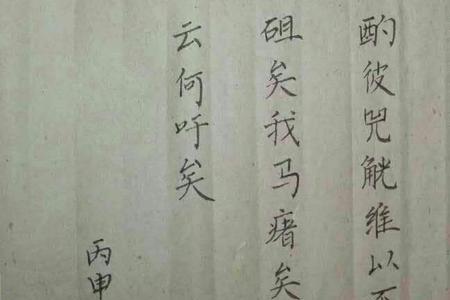 酌彼兕觥维以
砠矣我马瘏矣
云何吁矣
丙申